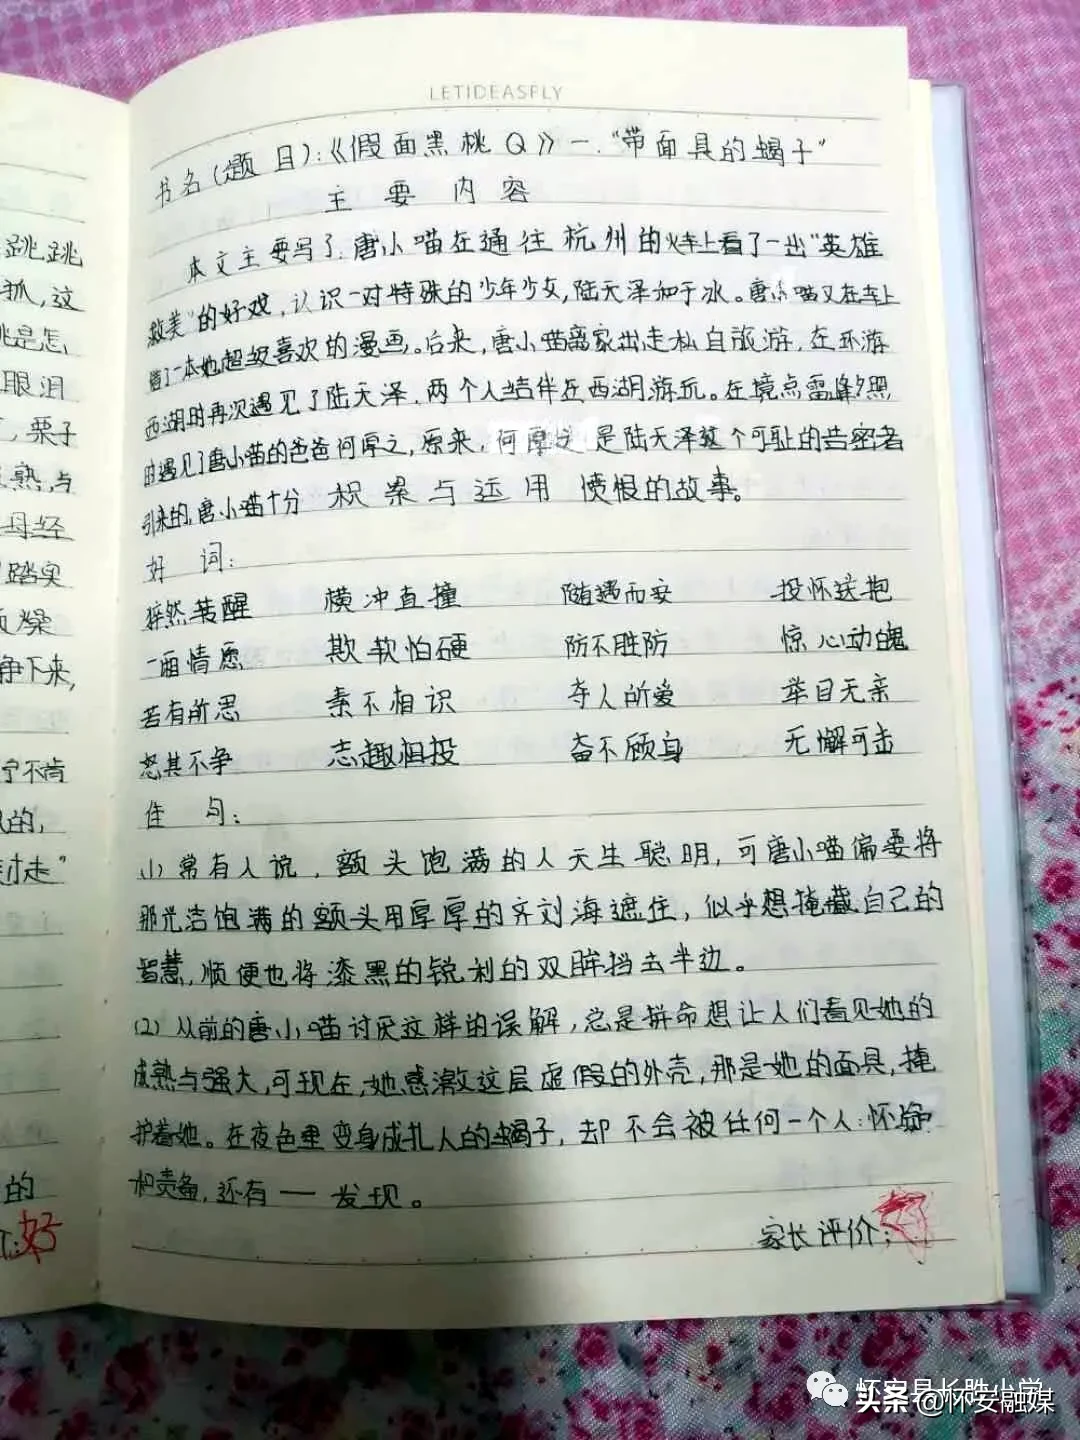 LETIDEASFLY
书名(题目):《假面黑桃Q》一."带面具的蝎子"
主要内容
本文主要写了:唐小喵在通往杭州的火车上看了一出"英雄
救美"的好戏,认识一对特殊的少年少女,陆天泽和于冰。唐小喵又在车上
看了一本她超级喜欢的漫画。后来,唐小喵离家出走私自旅游,在环游
西湖时再次遇见了陆天泽,两个人结伴在西湖游玩。在境点雷峰夕照
时遇见了唐小喵的爸爸何厚之,原来,何厚之是陆天泽这个可耻的告密者
引来的,唐小喵十分愤恨的故事。
积累与运用
好词:
猝然装醒 横冲直撞 随遇而安 投怀送抱
一厢情愿 欺软怕硬 防不胜防 惊心动魄
若有所思 素不相识 夺人所爱 举目无亲
怒其不争 志趣相投 奋不顾身 无懈可击
佳句:
(1)常有人说,额头饱满的人天生聪明,可唐小喵偏要将
那光洁饱满的额头用厚厚的齐刘海遮住,似乎想掩藏自己的
智慧,顺便也将漆黑的锐利的双眸挡去半边。
(2)从前的唐小喵讨厌这样的误解,总是拼命想让人们看见她的
成熟与强大,可现在,她感激这层虚假的外壳,那是她的面具,掩
护着她。在夜色里变身成扎人的蝎子,却不会被任何一个人:怀疑
和责备,还有——发现。
家长评价:
跳跳
狐,这
眼泪
,栗子
熟,与
母经
踏实
燥
争下来,
宁不肯
的,
过走"
的
:好
怀安县长胜小学
头条@怀安融媒